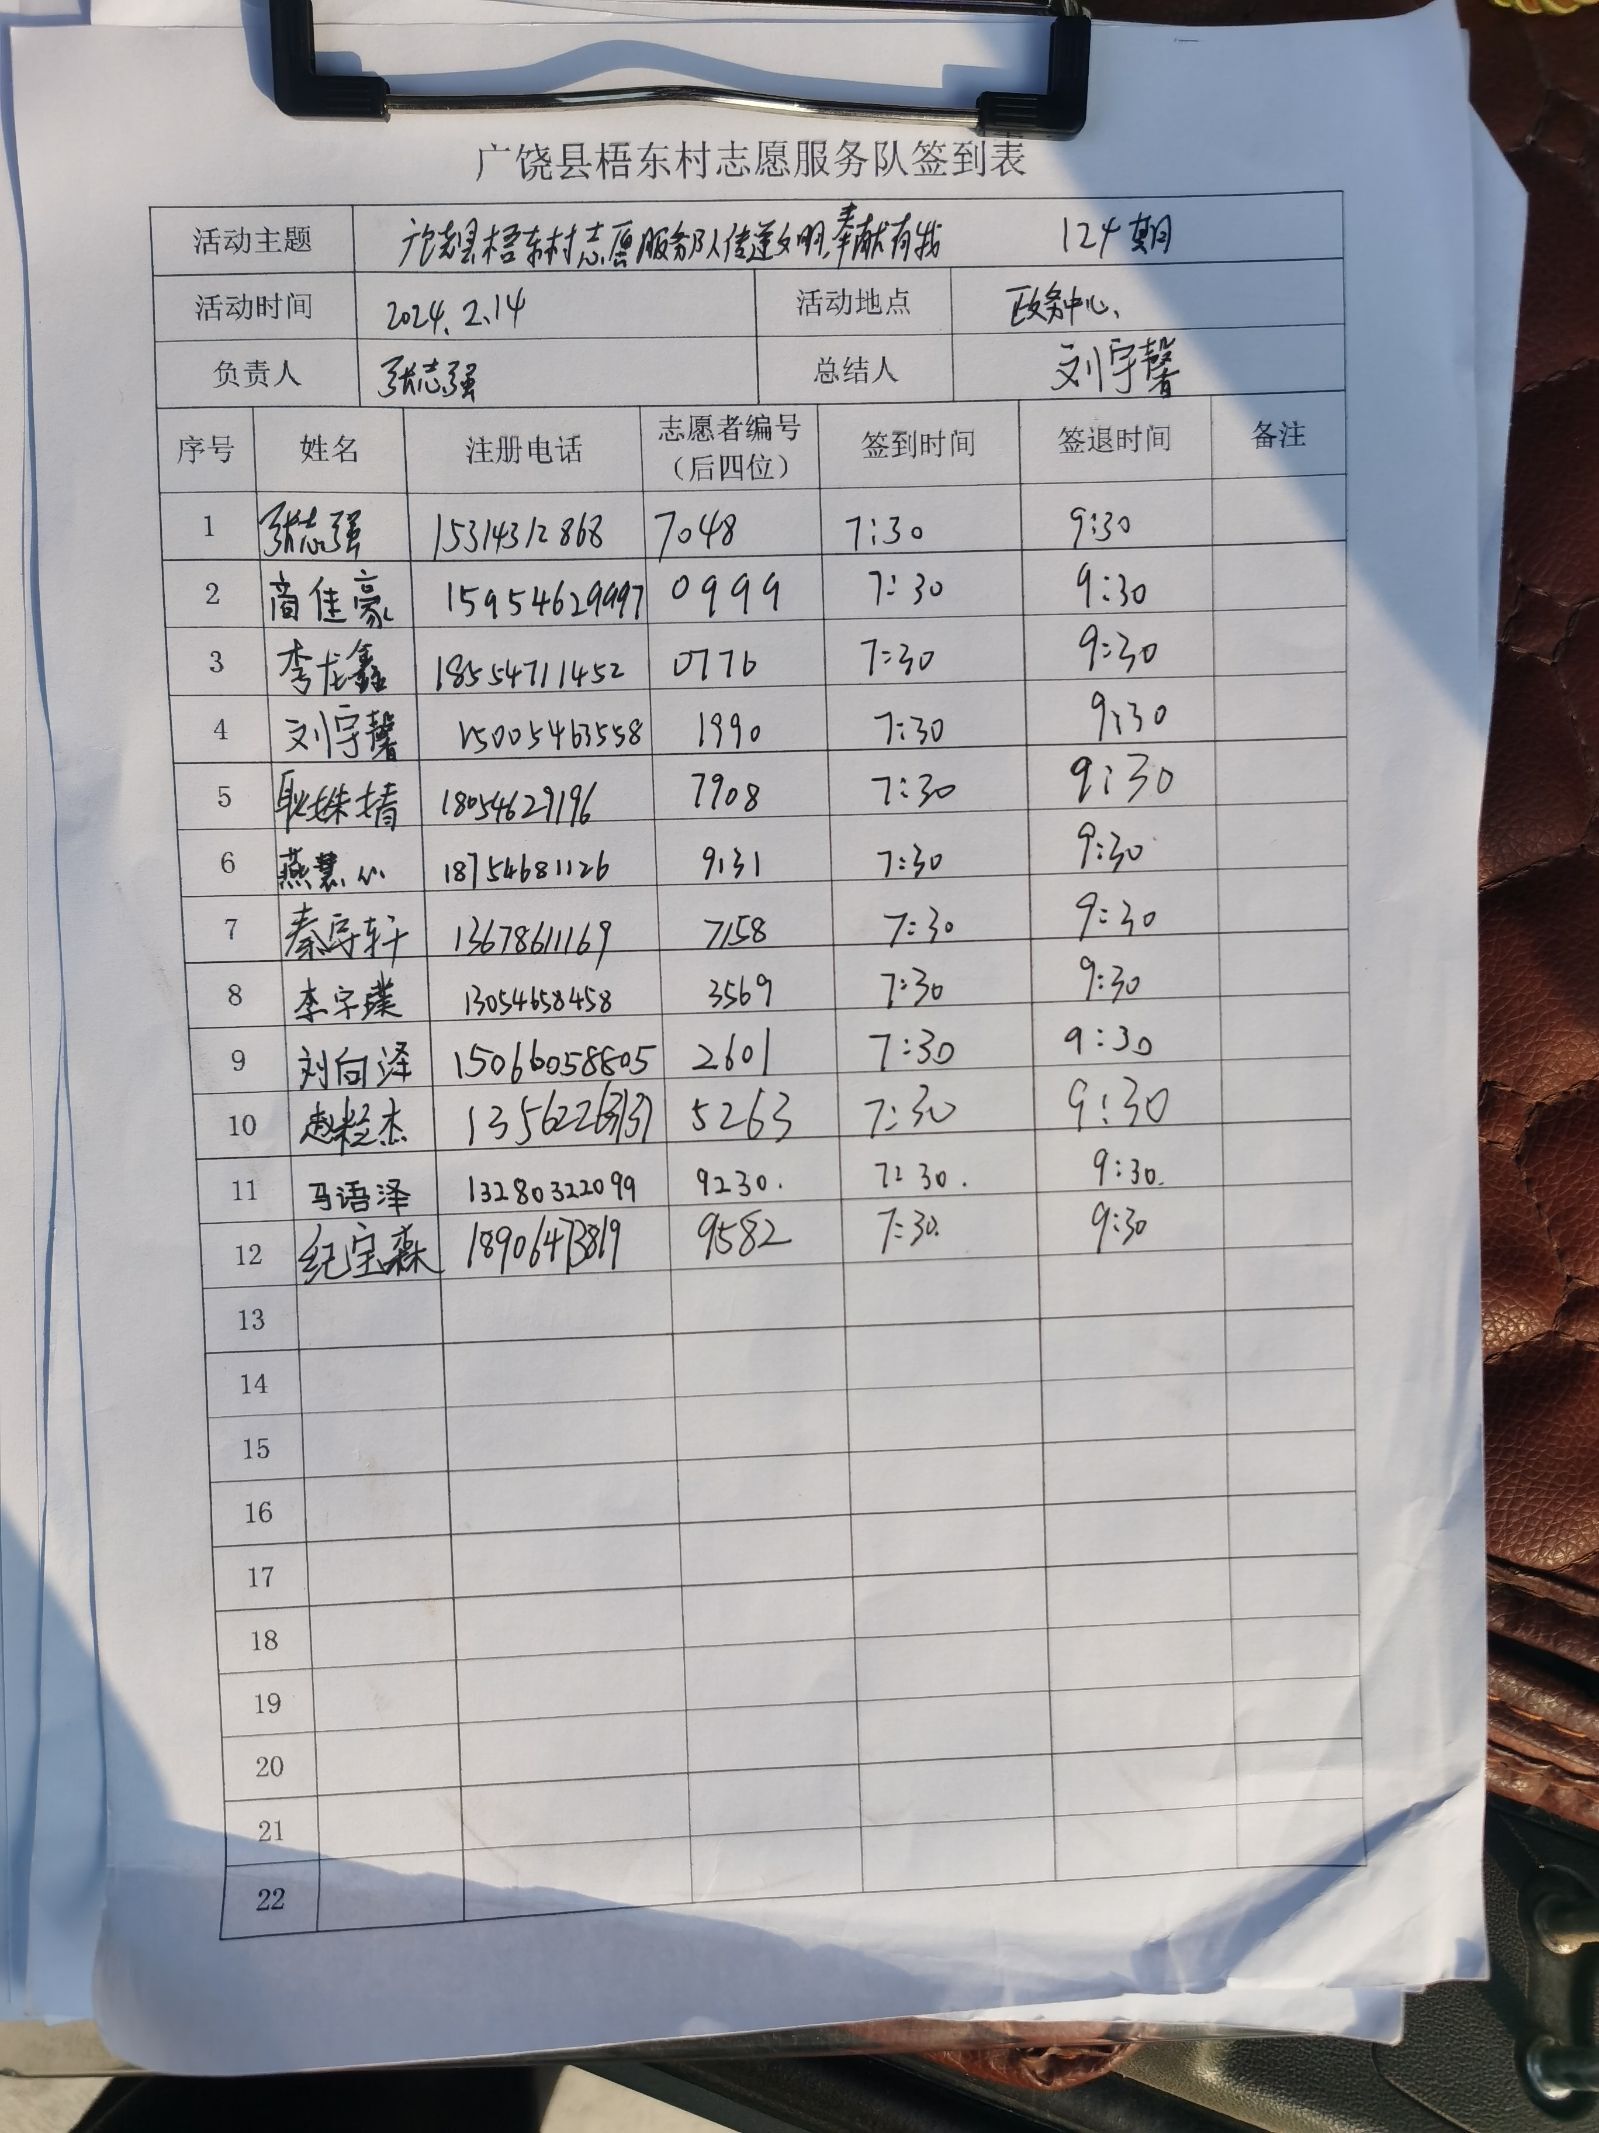 广饶县梧东村志愿服务队签到表
活动主题 广饶县梧东村志愿服务队传递文明,奉献有我 124期
活动时间 2024.2.14 活动地点 政务中心.
负责人 张志强 总结人 刘宇馨
序号 姓名 注册电话 志愿者编号（后四位） 签到时间 签退时间 备注
1 张志强 15314312868 7048 7:30 9:30
2 商佳豪 15954629997 0999 7:30 9:30
3 李龙鑫 18554711452 0776 7:30 9:30
4 刘宇馨 15005463558 1990 7:30 9:30
5 耿姝婧 18054629196 7908 7:30 9:30
6 燕慧心 18754681126 9131 7:30 9:30
7 秦宇轩 13678611169 7158 7:30 9:30
8 李宇璞 13054658458 3569 7:30 9:30
9 刘向泽 15066058805 2601 7:30 9:30
10 赵粒杰 5263 7:30 9:30
11 马语泽 13280322099 9230. 7:30. 9:30.
12 纪宝森 18906473819 9582 7:30. 9:30
13
14
15
16
17
18
19
20
21
22